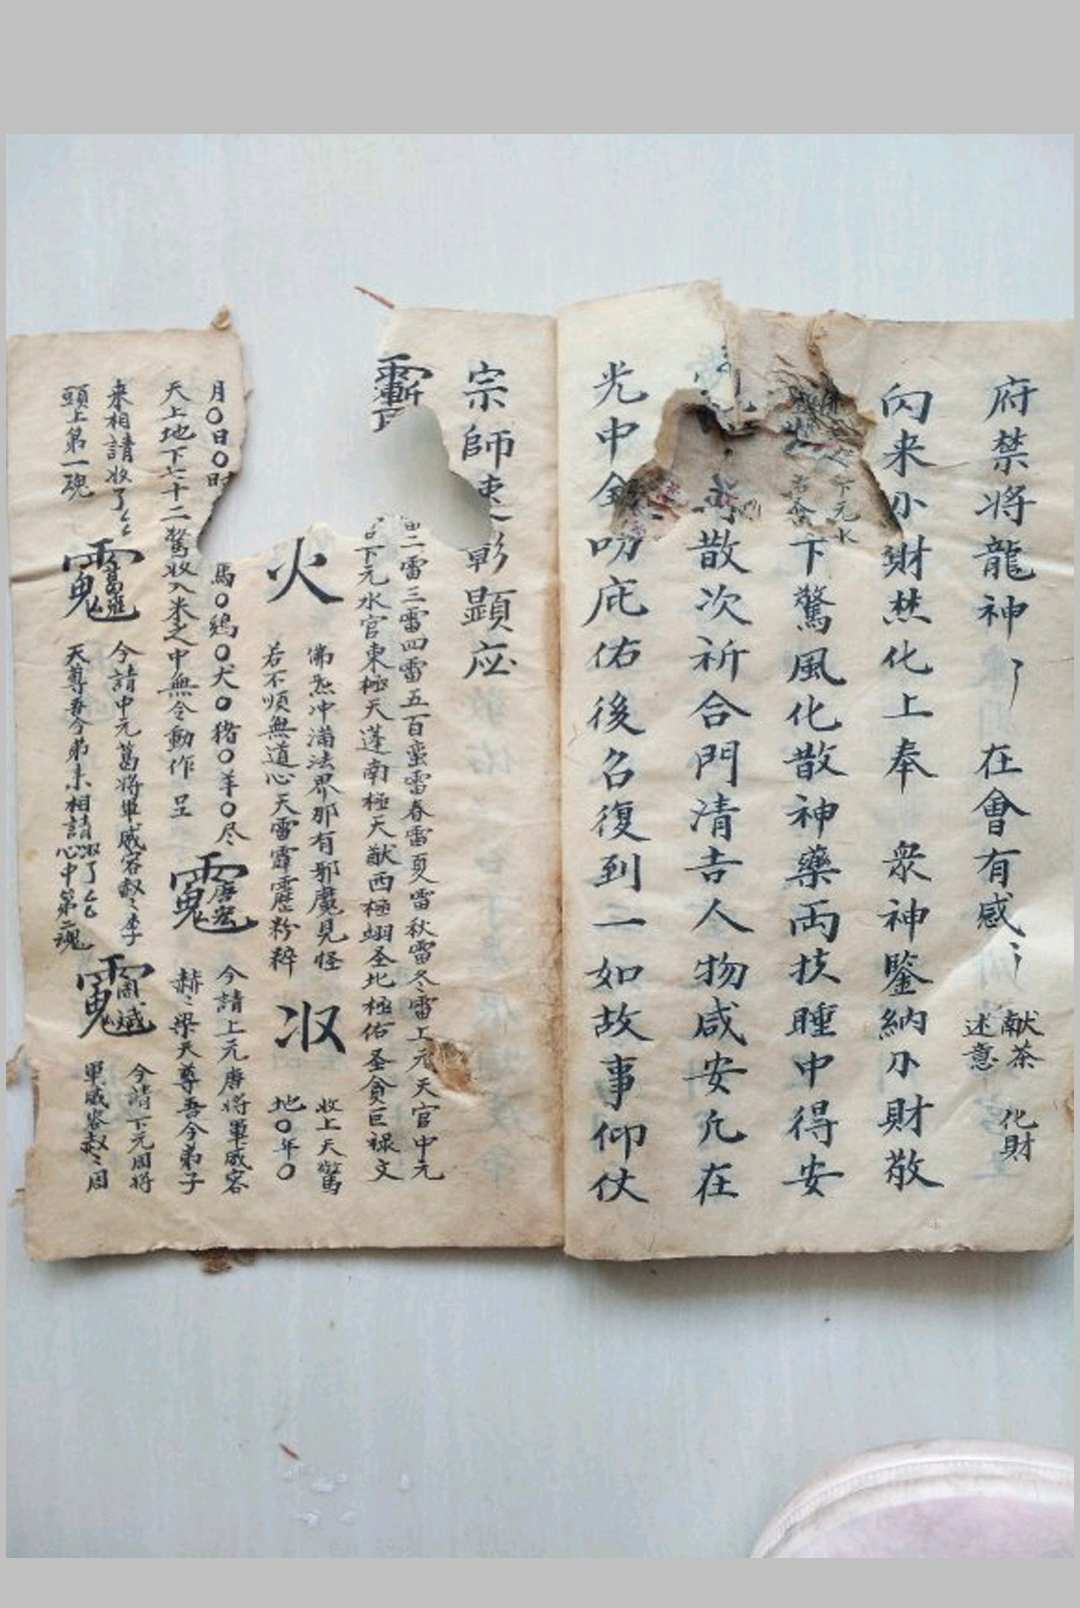 府禁将龍神 在會有感
献茶 化財
述意
向来小財焚化上奉 衆神鑒納小財敬
下元水
下驚風化散神藥两扶睡中得安
散次祈合門清吉人物咸安凢在
光中 叨庇佑後名復到一如故事仰仗
宗師 彰顯应
二雷三雷四雷五百蛮雷春雷夏雷秋雷冬雷上元天官中元
下元水官東極天蓬南極天猷西極翊圣北極佑圣贪巨禄文
火
佛 冲满法界那有邪魔見怪
若不順無道心天雷霹靂粉粹
收
收上天驚
地〇年〇
月〇日〇時
馬〇鷄〇犬〇猪〇羊〇尽
天上地下七十二驚收入米之中無令動作呈
唐宏
今請上元唐将軍威容
赫々梁天尊吾今弟子
来相請收了
頭上第一魂
葛雍
今請中元葛将軍威容赫々李
天尊吾今弟子相請收了 心中第二魂
周斌
今請下元周将
軍威容赫々周